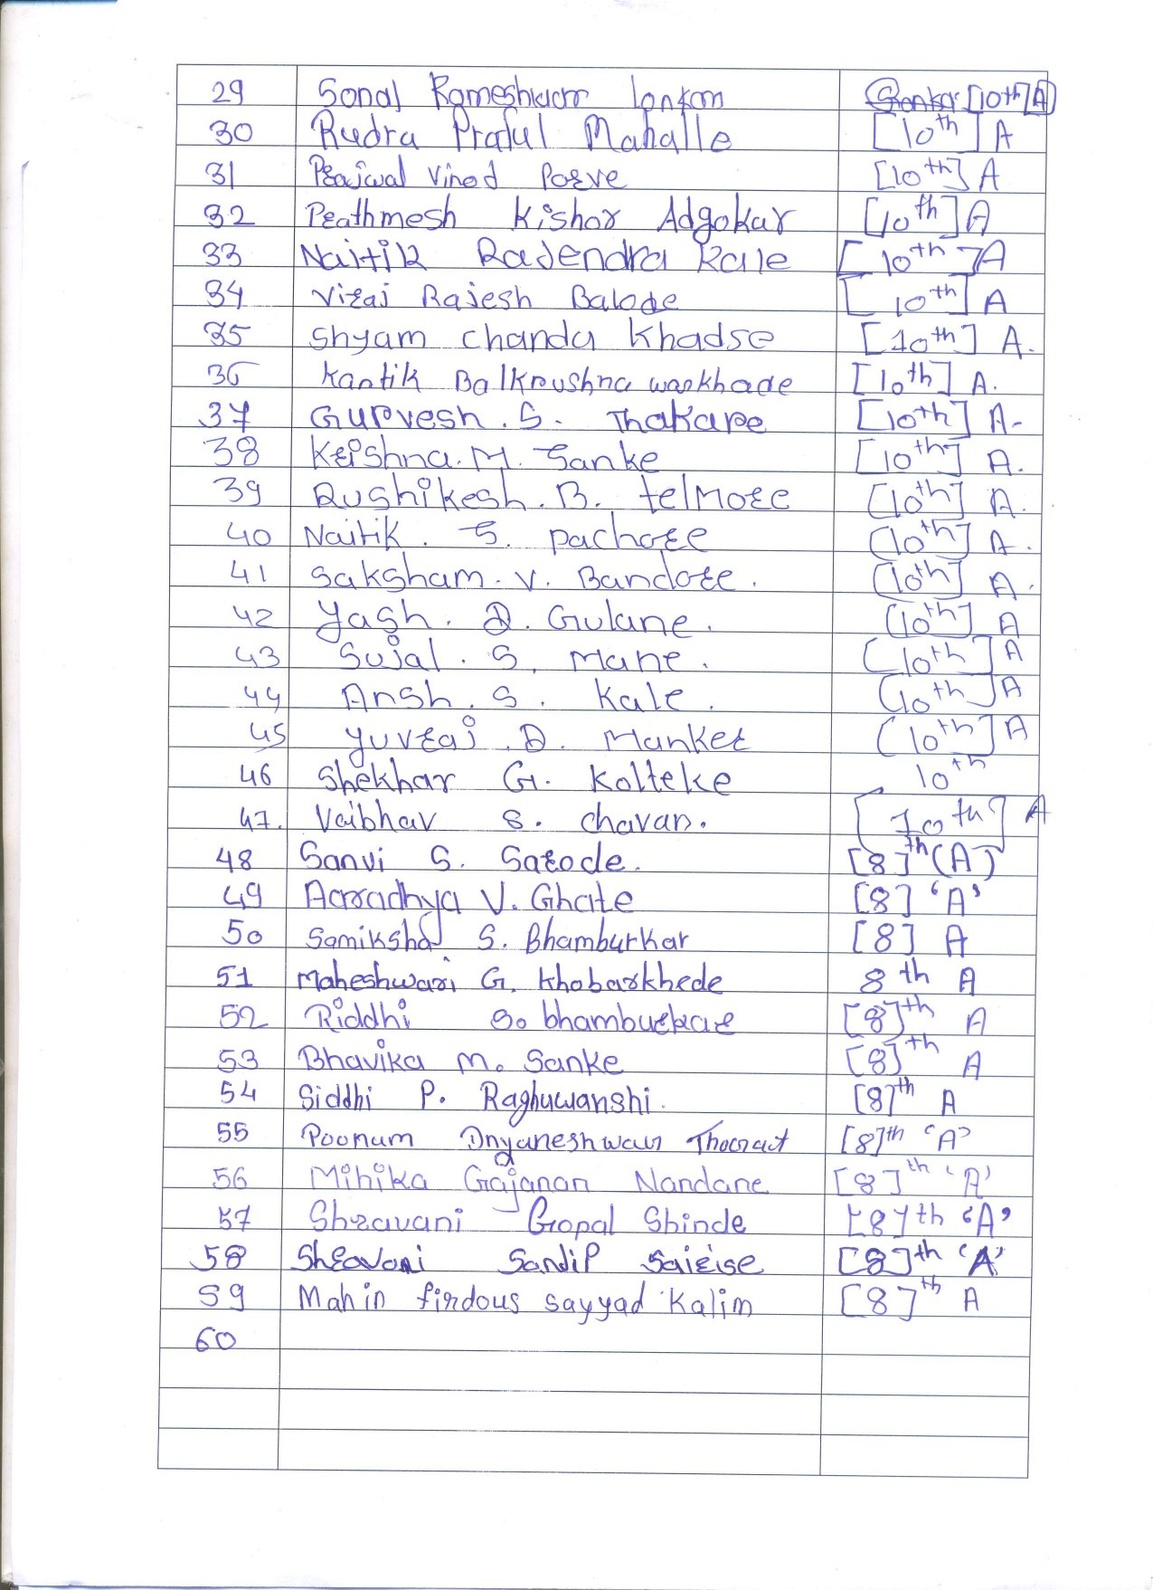 29 Sonal Rameshwar Lonkar [10th] A
30 Rudra Praful Mahalle [10th] A
31 Prajwal Vinod Porve [10th] A
32 Prathmesh Kishor Adgokar [10th] A
33 Naitik Rajendra Kale [10th] A
34 Viraj Rajesh Balode [10th] A
35 Shyam chandu Khadse [10th] A.
36 Kartik Balkrushna warkhade [10th] A.
37 Gurvesh . S. Thakare [10th] A-
38 Krishna. M. Sanke [10th] A.
39 Rushikesh . B. telMore [10th] A.
40 Naitik . S. pachore [10th] A.
41 Saksham . V. Bandore. [10th] A.
42 Yash . D. Gulane. [10th] A
43 Sujal . S. Mane. [10th] A
44 Ansh. S. Kale. [10th] A
45 Yuvraj . D. Manker [10th] A
46 Shekhar G. Kolteke 10th
47. Vaibhav S. chavan. [10th] A
48 Sanvi S. Satode. [8]th (A)
49 Aaradhya V. Ghate [8] 'A'
50 Samiksha S. Bhamburkar [8] A
51 Maheshwari G. Khobarkhede 8th A
52 Riddhi S. bhamburkar [8]th A
53 Bhavika M. Sanke [8]th A
54 Siddhi P. Raghuwanshi. [8]th A
55 Poonam Dnyaneshwar [8]th 'A'
56 Mihika Gajanan Nandane [8]th 'A'
57 Shravani Gopal Shinde [8]th 'A'
58 Shravani Sandip Sairise [8]th 'A'
59 Mahin firdous sayyad Kalim [8]th A
60